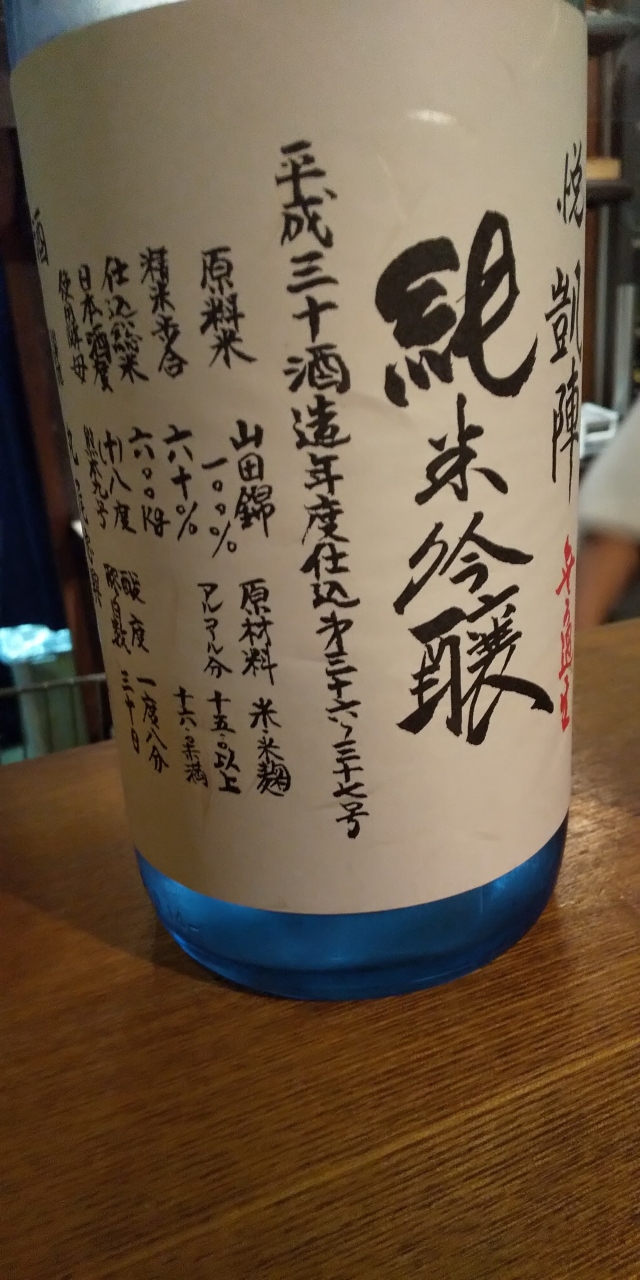 悦凱陣
純米吟醸
平成三十酒造年度仕込第三十六、三十七号
原料米 山田錦 一〇〇%
精米歩合 六十%
仕込総米 六〇〇kg
日本酒度 (+)八度
使用酵母 熊本九号
原材料 米・米麹
アルコール分 十五・〇以上
十六・〇未満
酸度 一度八分
醪日数 三十日
酒